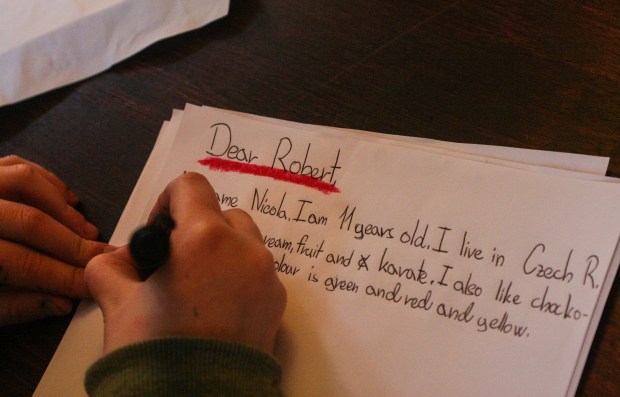 Dear Robert,
ame Nicola. I am 11 years old. I live in Czech R.
ream, fruit and karate. I also like chocko-
olour is green and red and yellow.